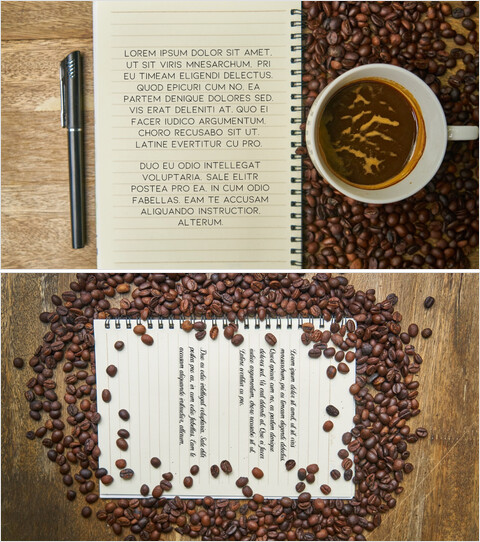 LOREM IPSUM DOLOR SIT AMET,
UT SIT VIRIS MNESARCHUM, PRI
EU TIMEAM ELIGENDI DELECTUS.
QUOD EPICURI CUM NO, EA
PARTEM DENIQUE DOLORES SED.
VIS ERAT DELENITI AT. QUO EI
FACER IUDICO ARGUMENTUM,
CHORO RECUSABO SIT UT.
LATINE EVERTITUR CU PRO.
DUO EU ODIO INTELLEGAT
VOLUPTARIA. SALE ELITR
POSTEA PRO EA, IN CUM ODIO
FABELLAS. EAM TE ACCUSAM
ALIQUANDO INSTRUCTIOR,
ALTERUM.
Lorem ipsum dolor sit amet, ut sit viris
mnesarchum, pri eu timeam eligendi delectus.
Quod epicuri cum no, ea partem denique
dolores sed. Vis erat deleniti at. Quo ei facer
iudico argumentum, choro recusabo sit ut.
Latine evertitur cu pro.
Duo eu odio intellegat voluptaria. Sale elitr
postea pro ea, in cum odio fabellas. Eam te
accusam aliquando instructior, alterum.